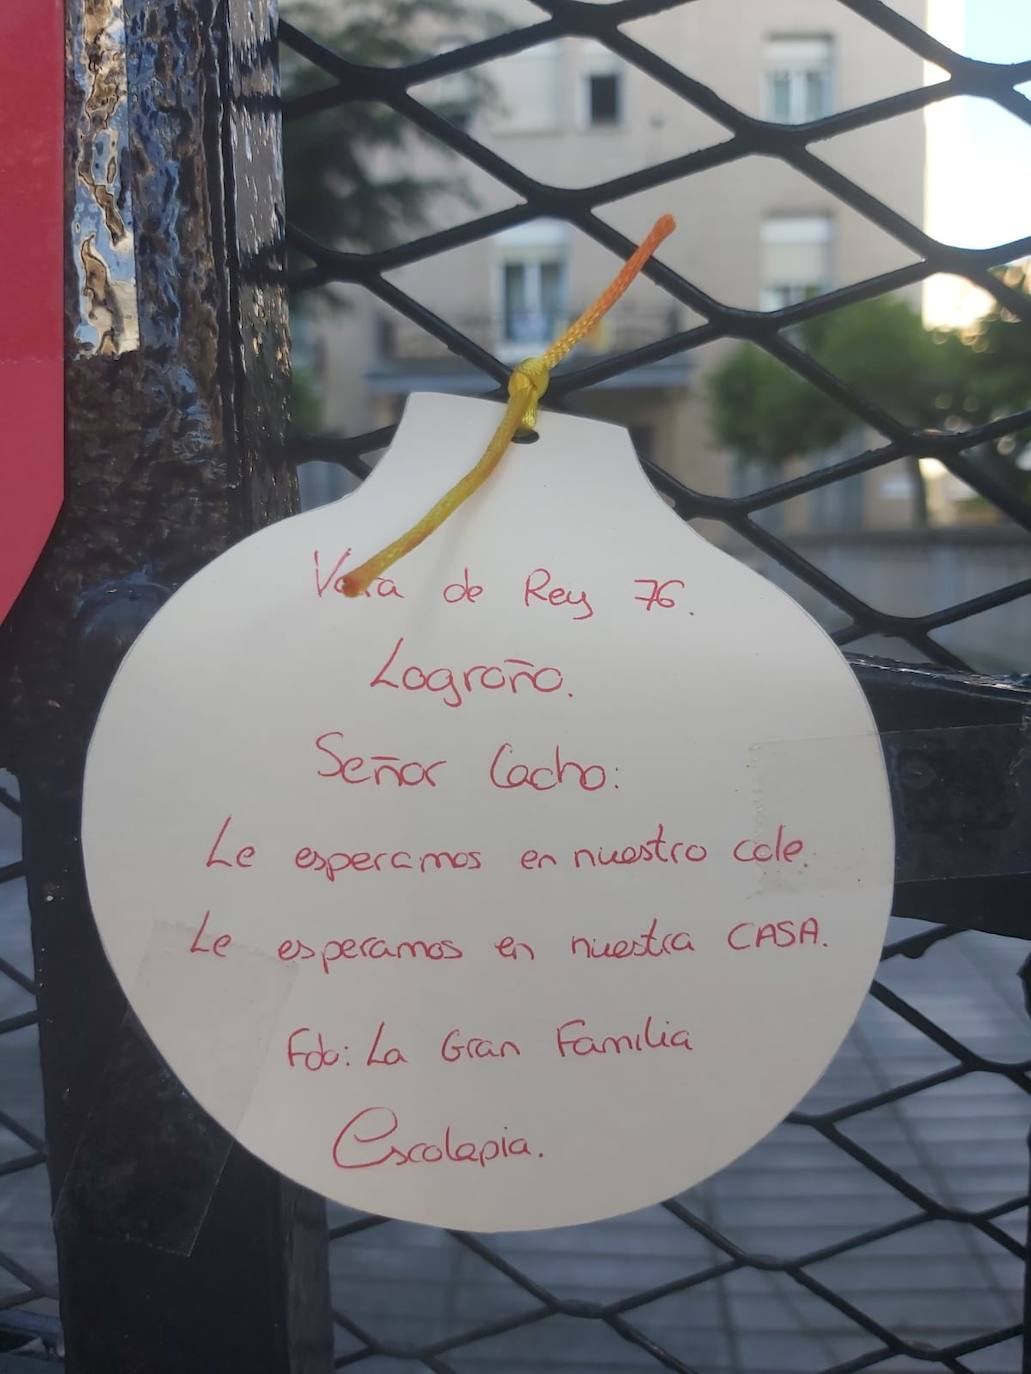 Vara de Rey 76.
Logroño.
Señor Cacho:
Le esperamos en nuestro cole.
Le esperamos en nuestra CASA.
Fdo: La Gran Familia
Escolapia.